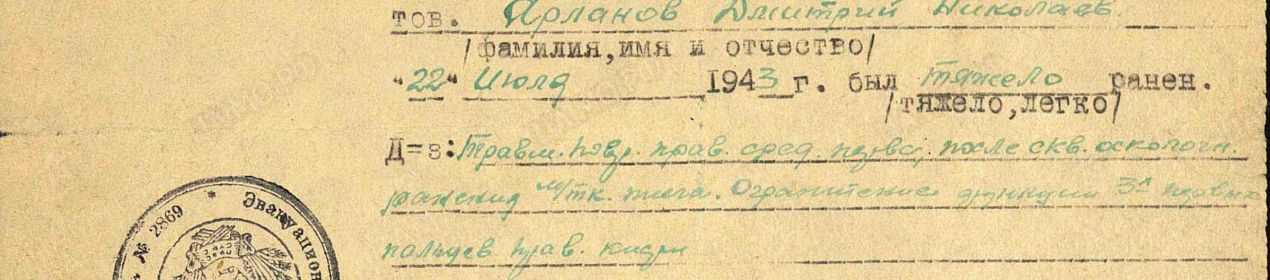 тов. Ярланов Дмитрий Николаев.
/фамилия,имя и отчество/
"22" Июля 1943 г. был тяжело ранен.
/тяжело,легко/
Д=з: Травм. повр. прав. сред. нерва, после скв. осколочн.
ранения м/тк. плеча. Ограничение функции 3х первых
пальцев прав. кисти
№ 2869 * Эвакуацион